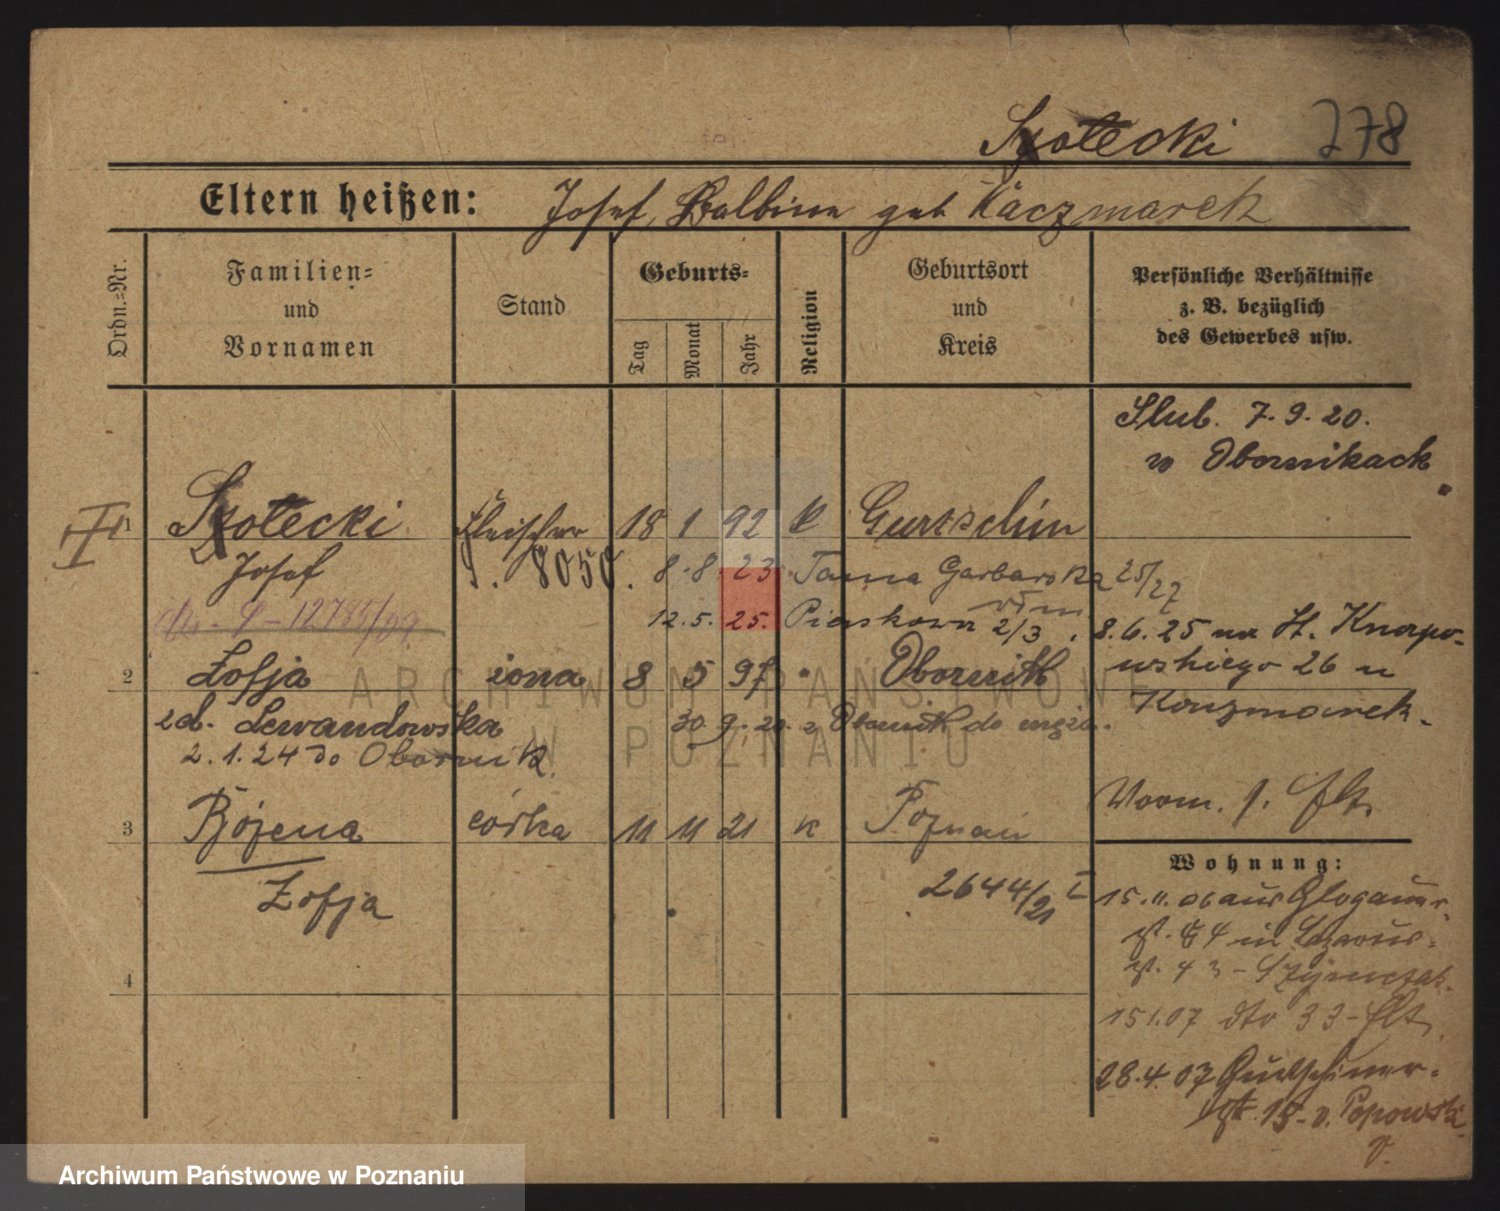 Szotecki 278
Eltern heißen: Josef, Balbina geb Kaczmarek
Ordn.-Nr.
Familien-
und
Vornamen
Stand
Geburts-
Tag
Monat
Jahr
Religion
Geburtsort
und
Kreis
Persönliche Verhältnisse
z. B. bezüglich
des Gewerbes usw.
Slub. 7.9.20.
w Obornikach
II
1 Szotecki Fleischer 18 1 92 k Gurtschin
Josef 8050. 8.8.23. Tama Garbarska 25/27
12.5.25. Piaskowa 2/3. 8.6.25 na St. Knapo-
2 Zofja żona 8 5 97 " Obornik
wskiego 26 u
Kaczmarek.
zd. Lewandowska 30.9.20. z Obornik do męża.
2.1.24 do Obornik.
Woom. s. Elt.
3 Bożena córka 11 11 21 k Poznań
Zofja
2644/21 I
Wohnung:
15.11.06 aus Glogauer-
st. 84 in Lazarus-
st. 43 -
15.1.07 dto 33 - Elt.
28.4.07 Gurtschiner-
st. 15 - v. Popowski
4
ARCHIWUM PAŃSTWOWE
W POZNANIU
Archiwum Państwowe w Poznaniu